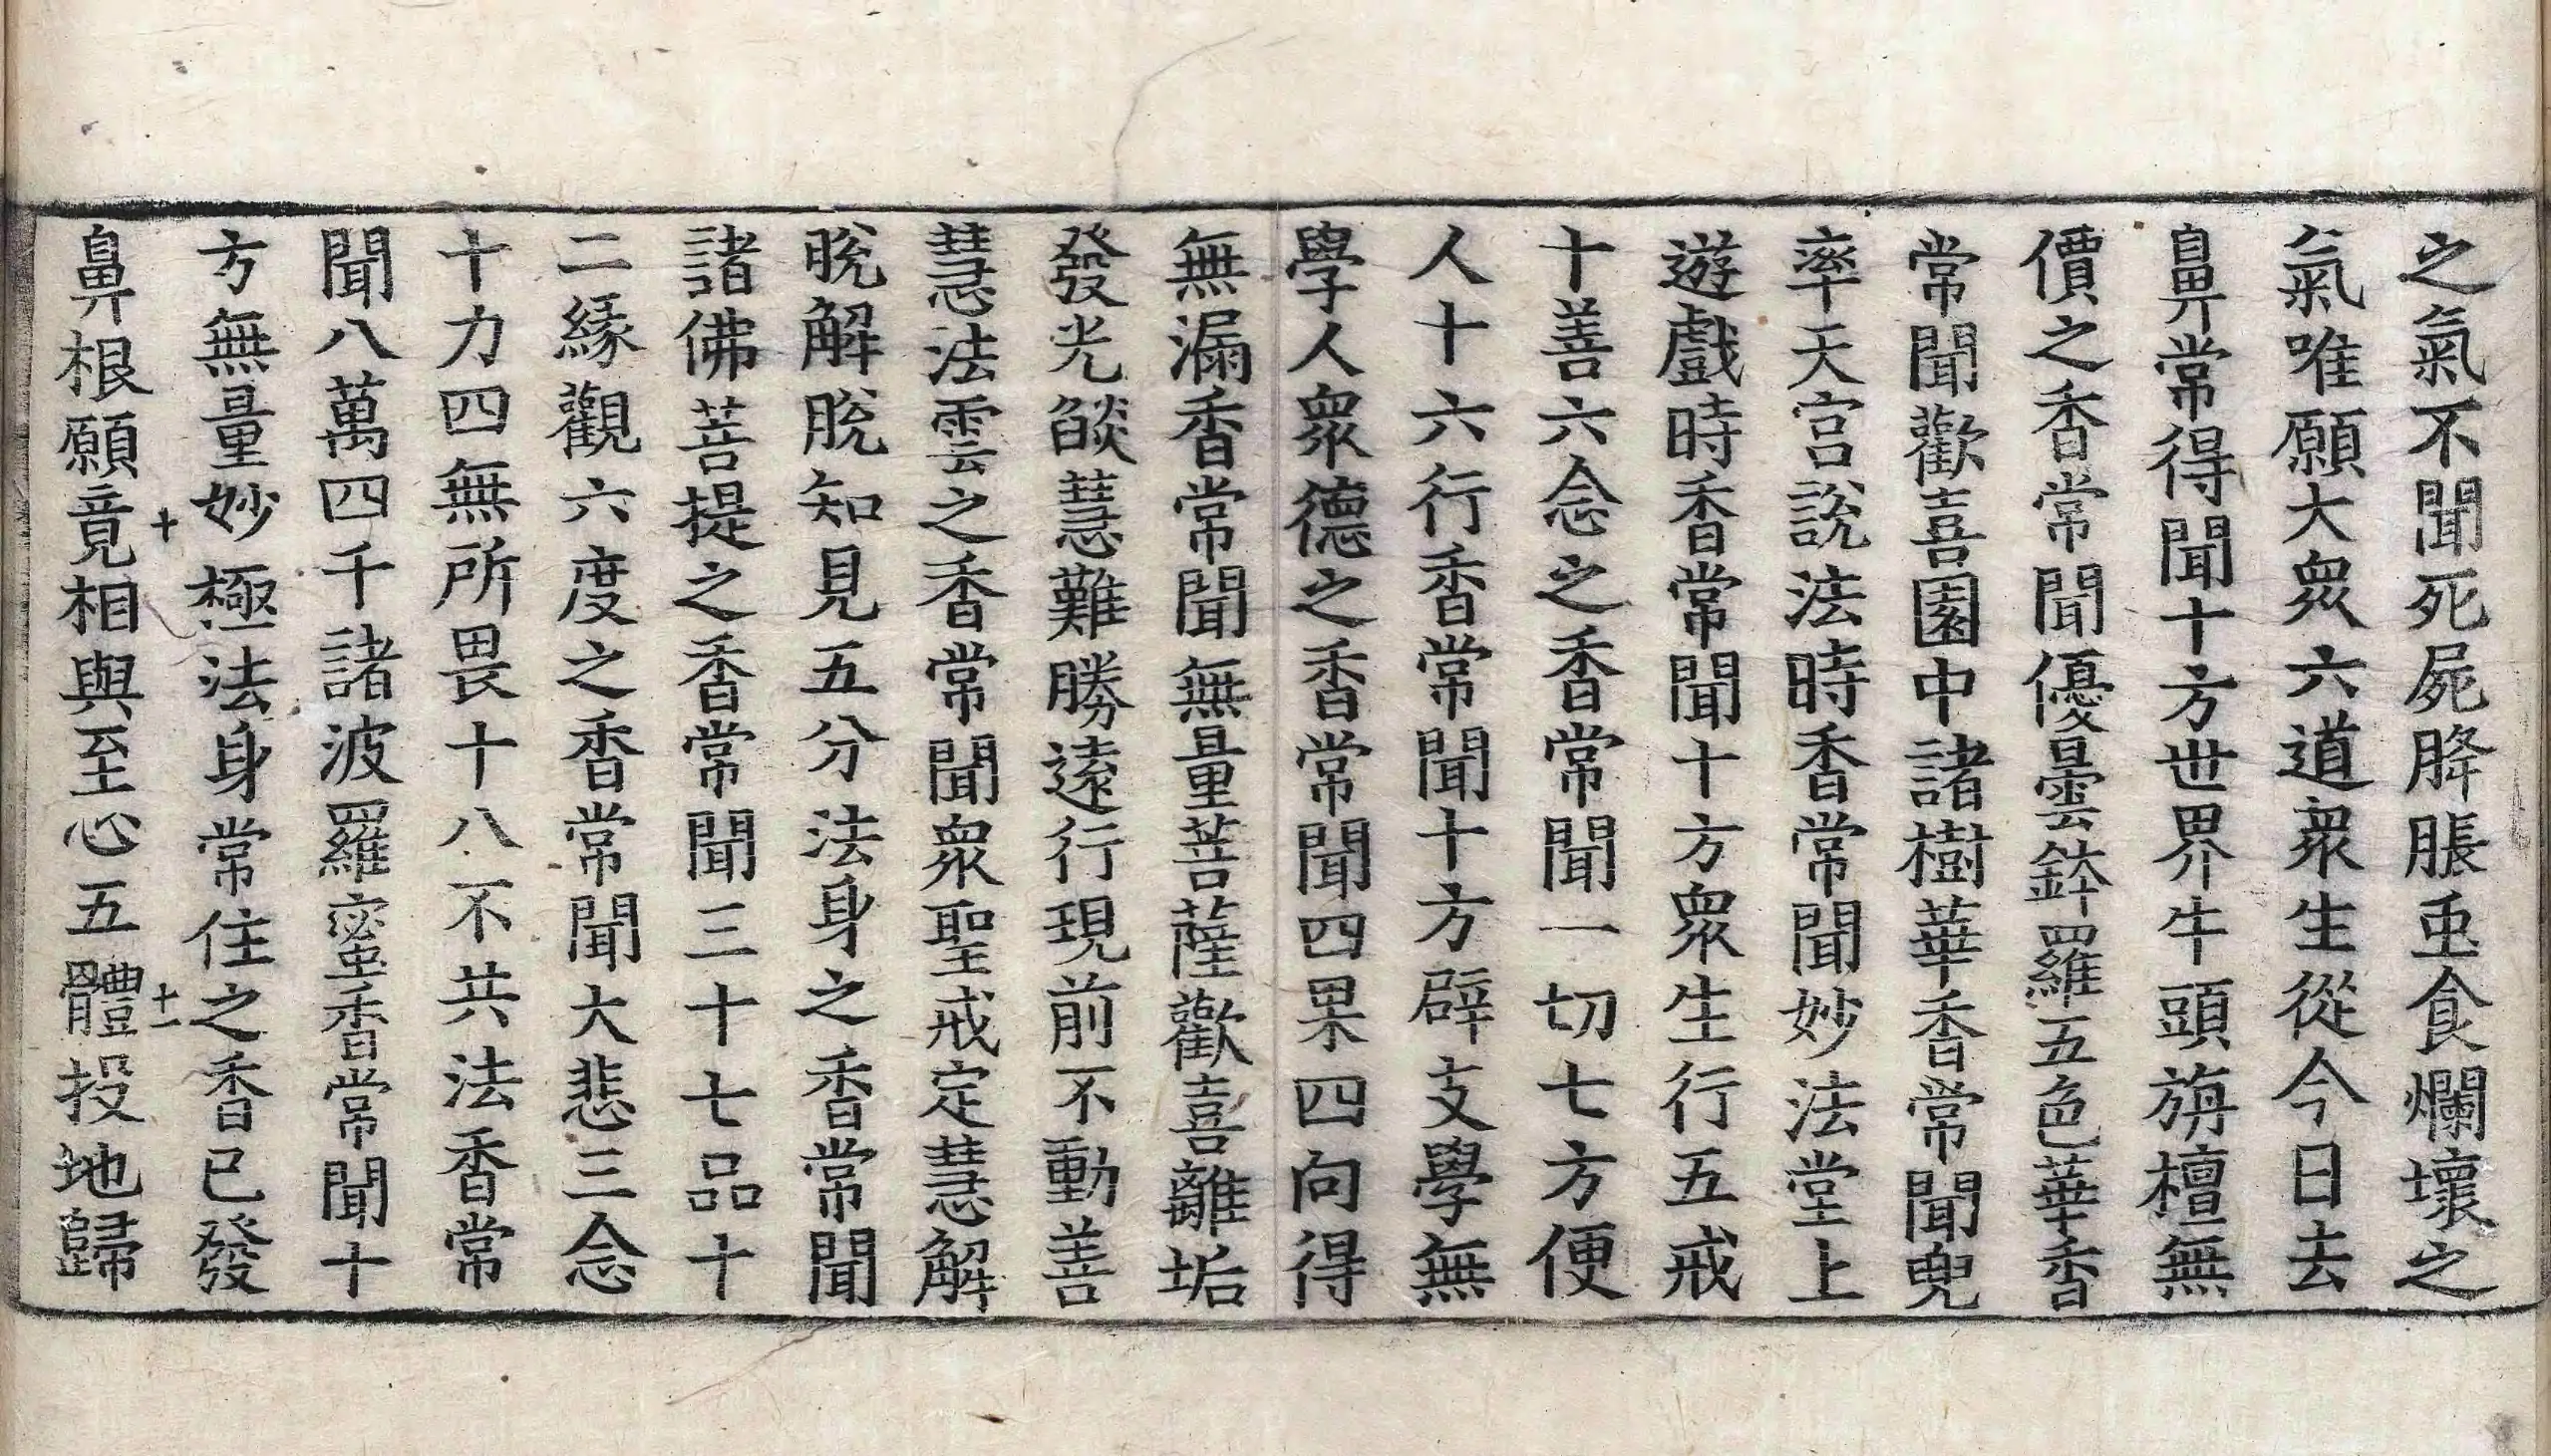 之氣不聞死屍胮脹䖝食爛壞之
氣唯願大衆六道衆生從今日去
鼻常得聞十方世界牛頭旃檀無
價之香常聞優曇鉢羅五色華香
常聞歡喜園中諸樹華香常聞兜
率天宮說法時香常聞妙法堂上
遊戲時香常聞十方衆生行五戒
十善六念之香常聞一切七方便
人十六行香常聞十方辟支學無
學人衆德之香常聞四果四向得
無漏香常聞無量菩薩歡喜離垢
發光燄慧難勝遠行現前不動善
慧法雲之香常聞衆聖戒定慧解
脫解脫知見五分法身之香常聞
諸佛菩提之香常聞三十七品十
二緣觀六度之香常聞大悲三念
十力四無所畏十八不共法香常
聞八萬四千諸波羅蜜香常聞十
方無量妙極法身常住之香已發
十 十一
鼻根願竟相與至心五體投地歸